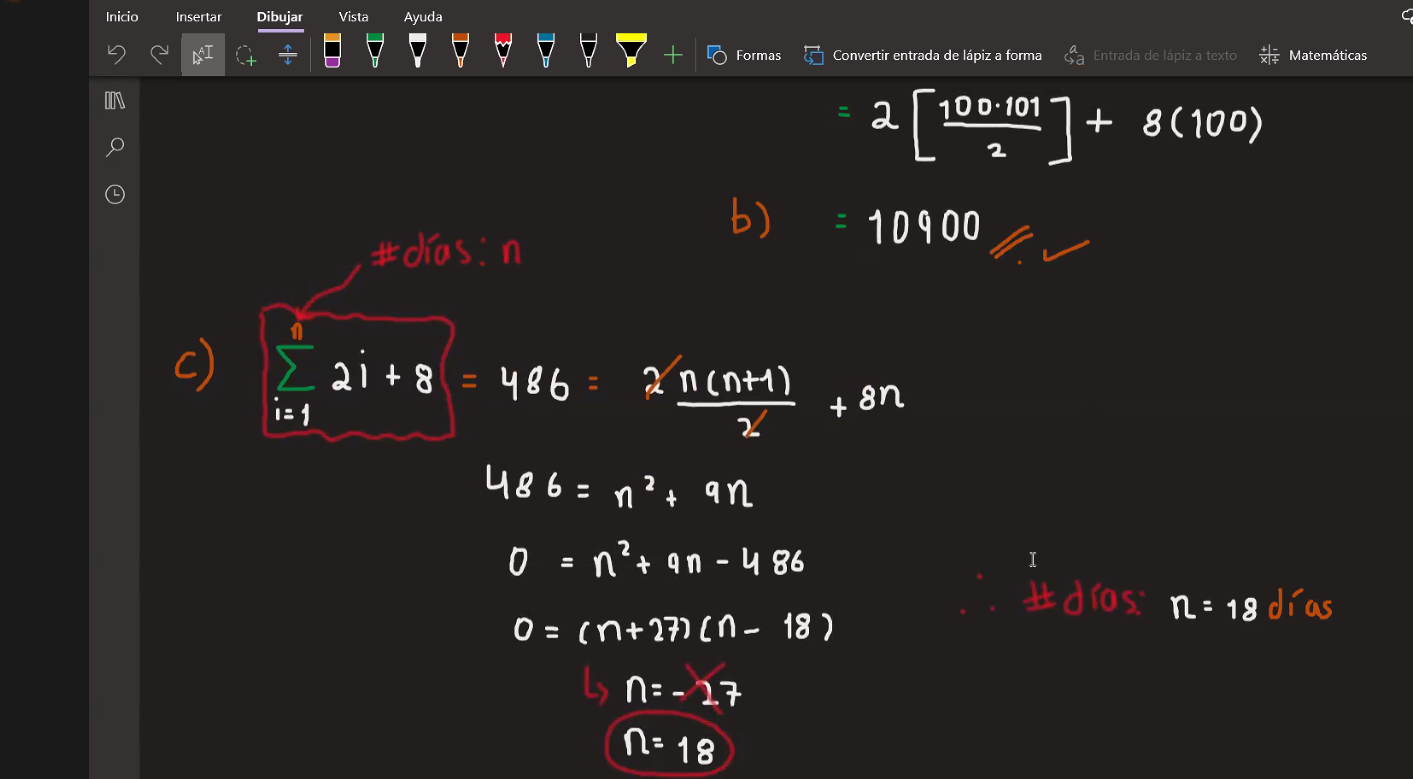 Inicio Insertar Dibujar Vista Ayuda
Formas Convertir entrada de lápiz a forma Entrada de lápiz a texto Matemáticas
= 2 [ 100·101 / 2 ] + 8(100)
b) = 10900
#días: n
c) n ∑ i=1 2i + 8 = 486 = 2 n(n+1) / 2 + 8n
486 = n² + 9n
0 = n² + 9n - 486
∴ #días: n = 18 días
0 = (n+27)(n - 18)
n = -27
n = 18